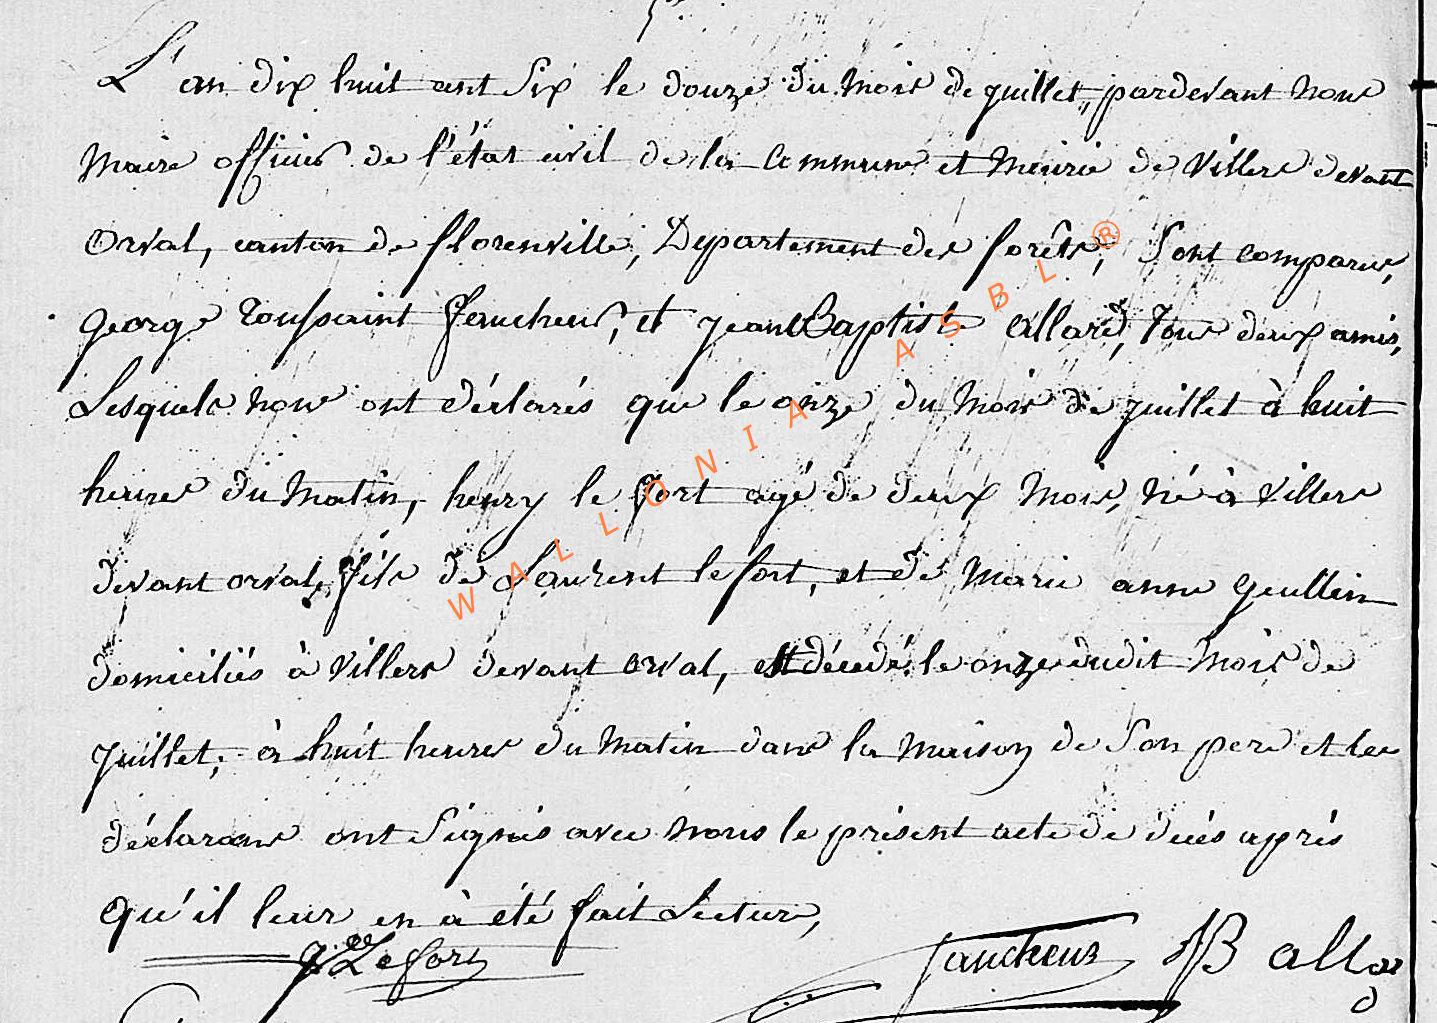 L'an dix huit cent Six le douze du mois de juillet, pardevant nous
Maire officier de l'état civil de la Commune et Mairie de Villers devant
Orval, canton de florenville, Departement des forêts, Sont comparus,
george toussaint faucheur, et jean Baptiste allard, tous deux amis,
Lesquels nous ont déclarés que le onze du mois de juillet à huit
heures du matin, henry le fort agé de deux mois, né à Villers
devant orval, fils de Laurent lefort, et de marie anne
domiciliés à Villers devant orval, est décedé le onze dudit mois de
juillet, à huit heures du matin dans la maison de Son pere et les
déclarans ont Signés avec nous le présent acte de décés apprés
qu'il leur en à été fait Lecture,
Lefort faucheur JB allard
WALLONIA ASBL ®